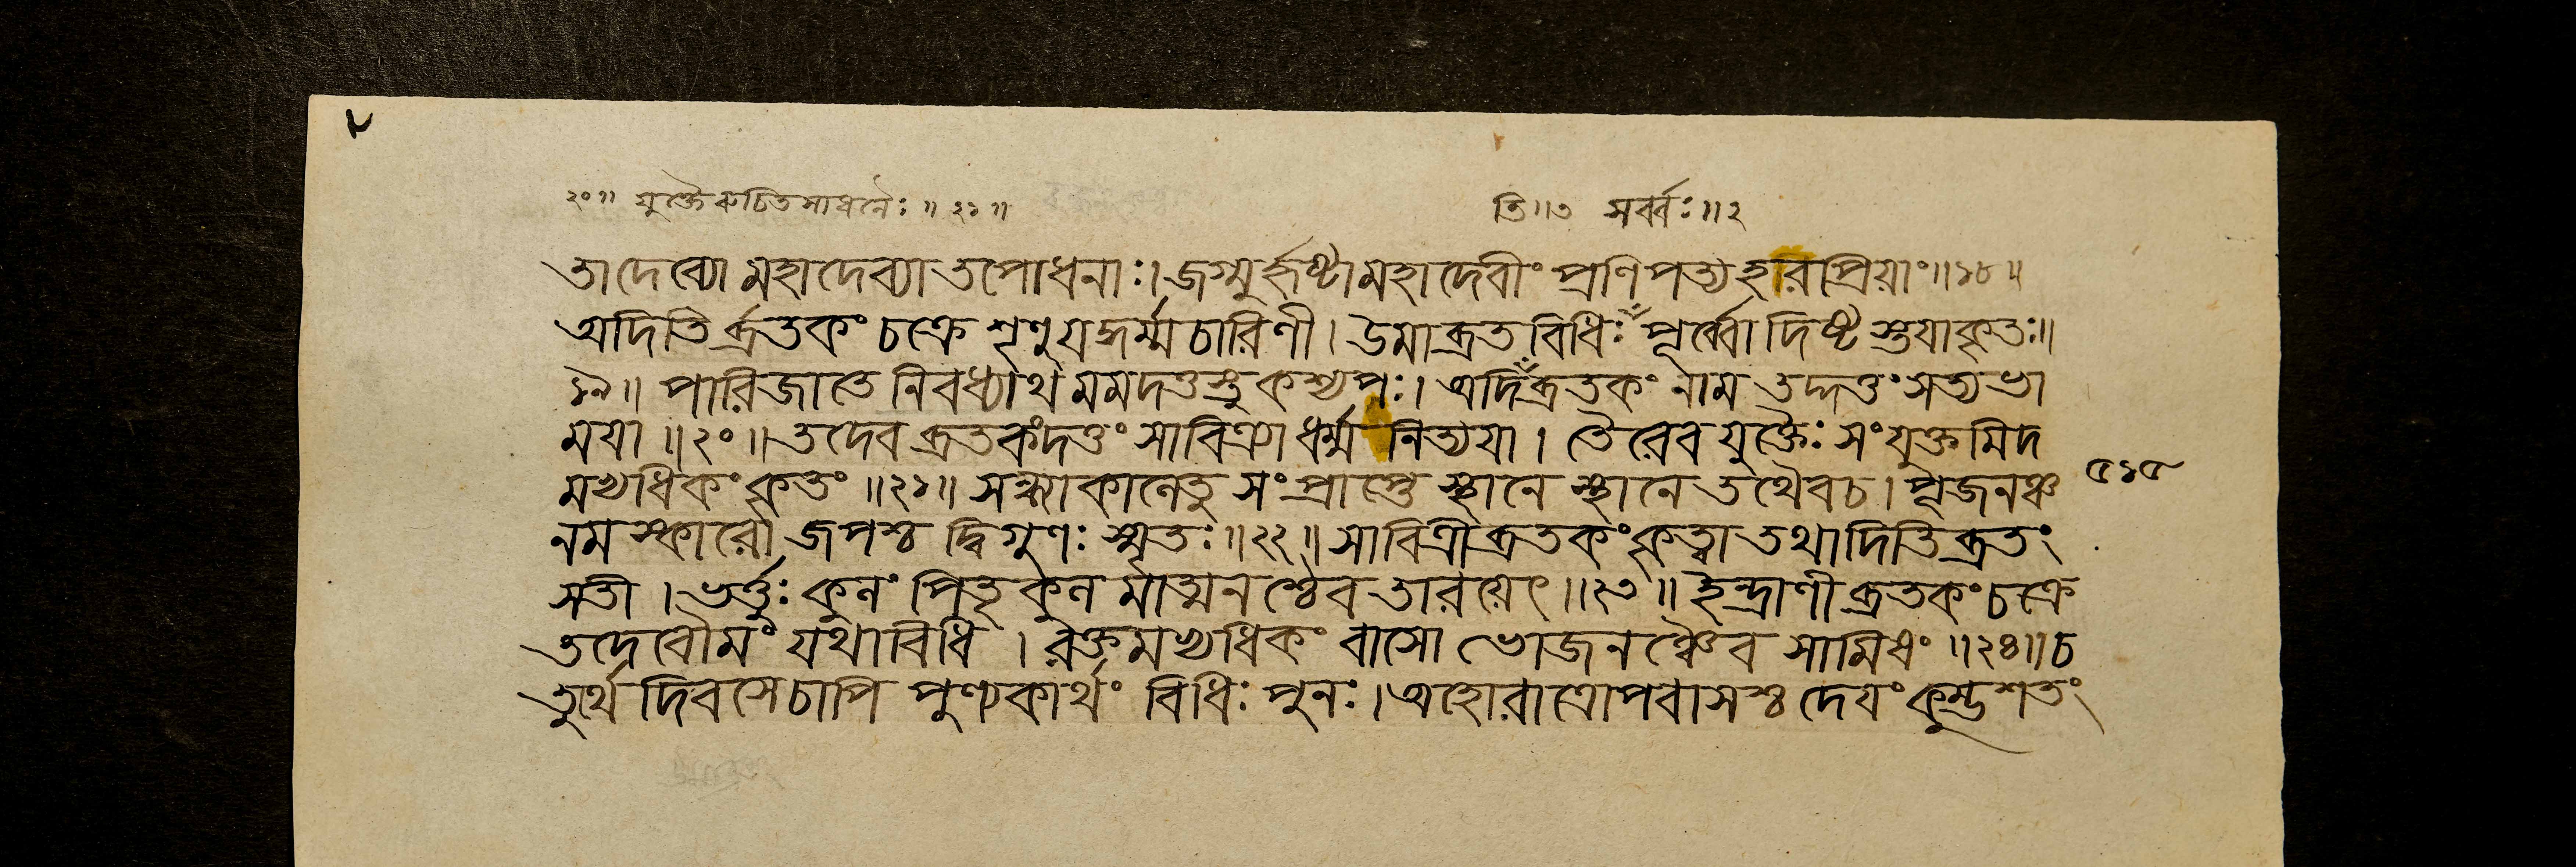 ২০॥ যুক্তৈরুচিতসাধনৈঃ॥২১॥ তি॥৩ সর্ব্বঃ॥২
তা দেব্যো মহাদেব্যা তপোধনাঃ। জগ্মুর্হৃষ্টা মহাদেবীং প্রণিপত্য হরিপ্রিয়াং॥১৮॥
অদিতির্ব্রতকং চক্রে শৃণু যদ্ধর্ম্মচারিণী। উমাব্রতবিধিঃ পূর্ব্বোদিষ্ট স্তয়া কৃতঃ॥
১৯॥ পারিজাতে নিবধ্যাথ মম দত্তস্তু কশ্যপঃ। এদিব্রতকং নাম তদ্দত্তং সত্যভা
ময়া॥২০॥ তদেব ব্রতকং দত্তং সাবিত্র্যা ধর্ম্ম নিত্যয়া। তৈরেব যুক্তৈঃ সংযুক্তমিদ
মপ্যধিকং কৃতং॥২১॥ সন্ধ্যাকালেতু সংপ্রাপ্তে স্থানে স্থানে তথৈবচ। পূজনঞ্চ
নমস্কারো জপশ্চ দ্বিগুণঃ স্মৃতঃ॥২২॥ সাবিত্রীব্রতকং কৃত্বা তথাদিতিব্রতং
সতী। ভর্ত্তুঃ কুলং পিতৃকুল র্মাত্মনশ্চৈব তারয়েৎ॥২৩॥ ইন্দ্রাণী ব্রতকং চক্রে
তদেবৌমং যথাবিধি। রক্তমপ্যধিকং বাসো ভোজনঞ্চৈব সামিষং॥২৪॥ চ
তুর্থে দিবসে চাপি পুণ্যকার্থং বিধিঃ পুনঃ। অহোরাত্রোপবাসশ্চ দেয়ং কুম্ভশতং
৫১৫